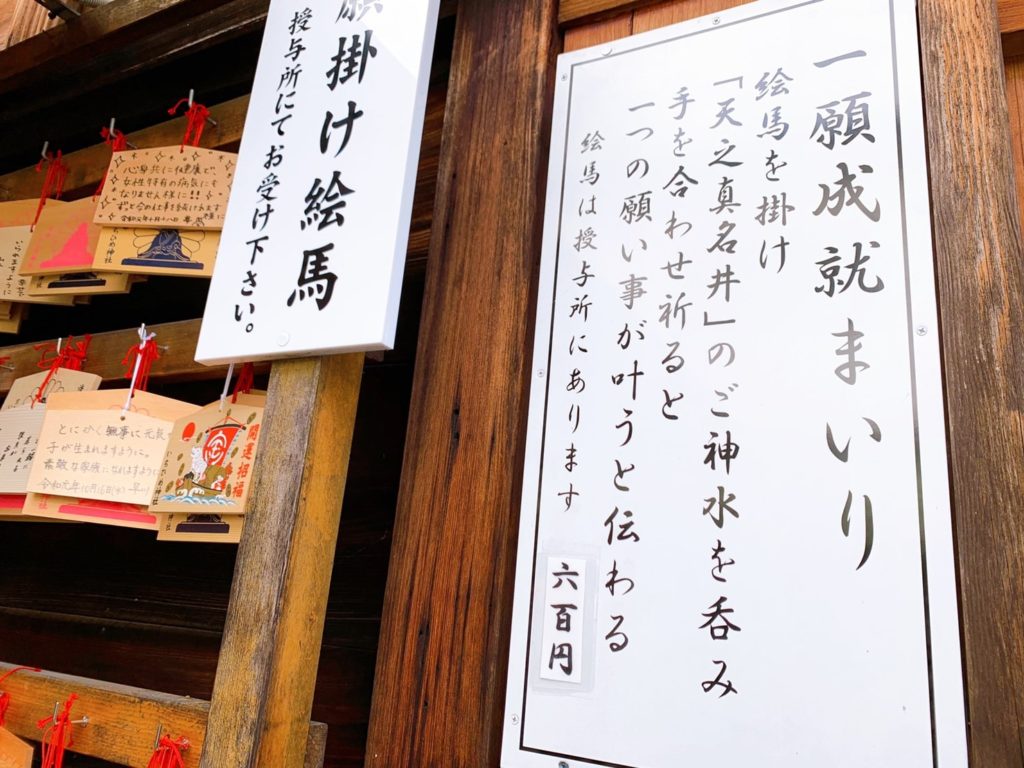 一願成就まいり
絵馬を掛け
「天之真名井」のご神水を呑み
手を合わせ祈ると
一つの願い事が叶うと伝わる
絵馬は授与所にあります
六百円
願掛け絵馬
授与所にてお受け下さい。
なりません様に!!
とにかく無事に元気
子が生まれますように。
素敵な家族になれますように
令和元年10月16日(水)
開運招福